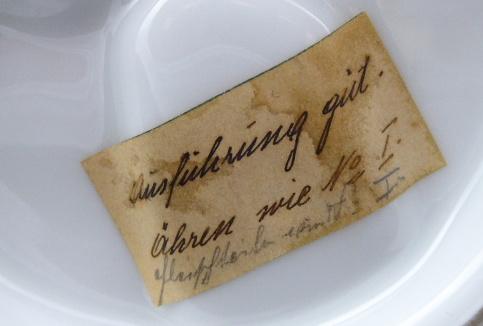 Ausführung gut.
Ähren wie No I.
I.